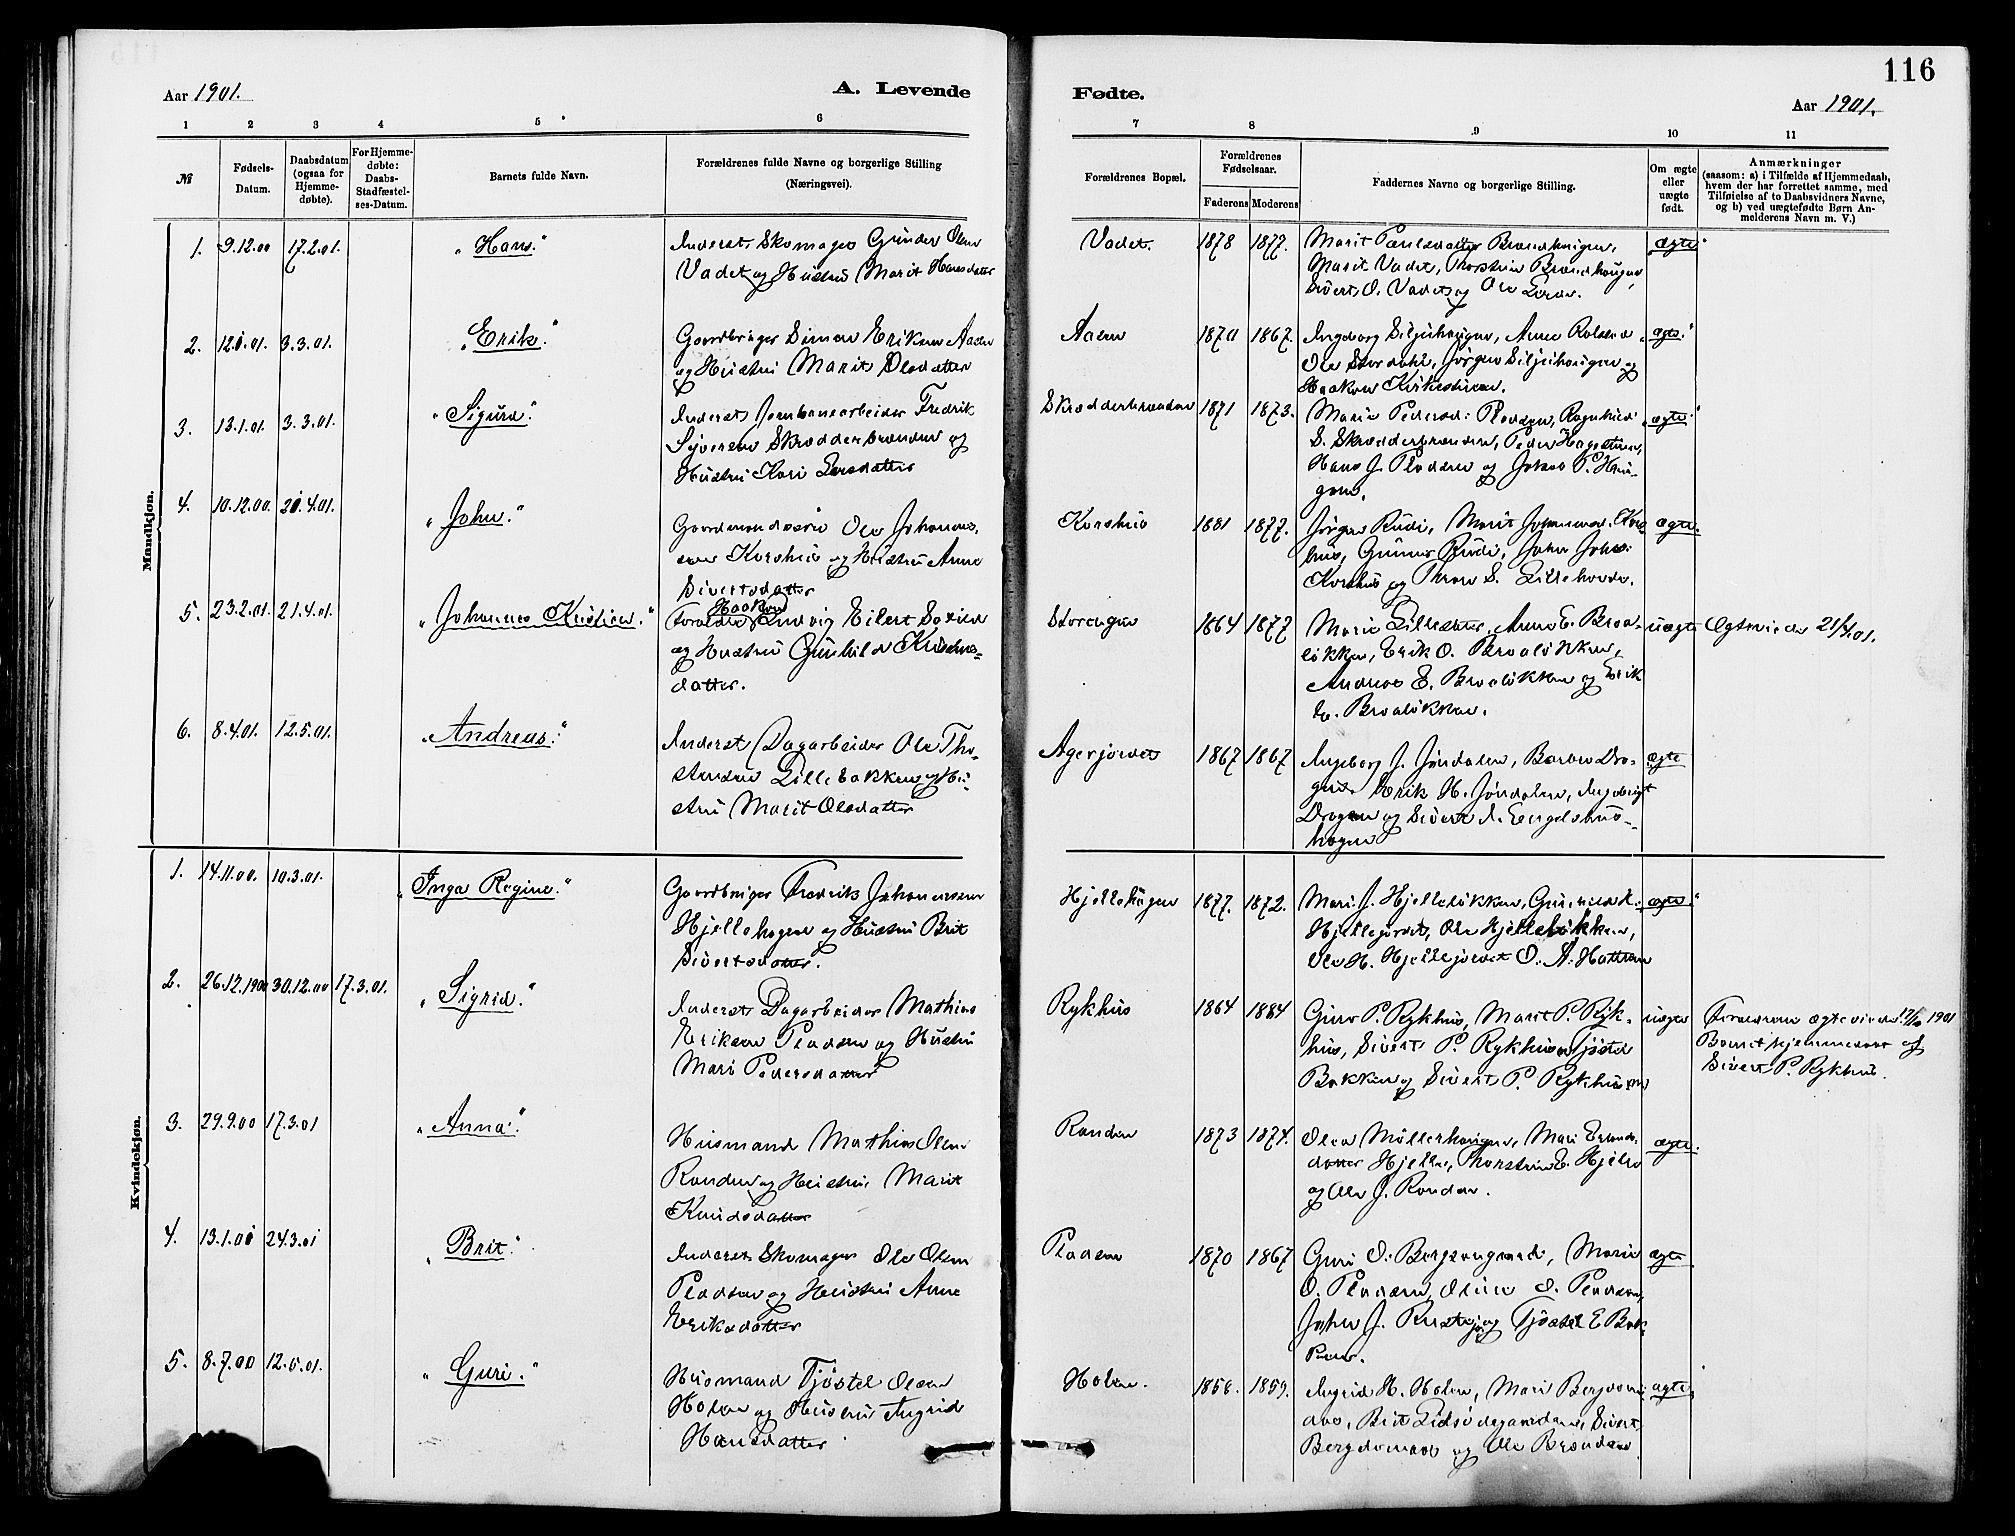 116
Aar 1901.
A. Levende
Fødte.
Aar 1901.
1 2 3 4 5 6
7 8 9 10 11
№
Fødsels-
Datum.
Daabsdatum
(ogsaa for
Hjemme-
døbte).
For Hjemme-
døbte:
Daabs-
Stadfæstel-
ses-Datum.
Barnets fulde Navn.
Forældrenes fulde Navne og borgerlige Stilling
(Næringsvei).
Forældrenes Bopæl.
Forældrenes
Fødselsaar.
Faderens Moderens
Faddernes Navne og borgerlige Stilling.
Om ægte
eller
uægte
født.
Anmærkninger
(saasom: a) i Tilfælde af Hjemmedaab,
hvem der har forrettet samme, med
Tilføielse af to Daabsvidners Navne,
og b) ved uægtefødte Børn An-
melderens Navn m. V.)
Mandkjøn.
1. 9.12.00 17.2.01. "Hans."
Inderst Skomager Gunder Olsen
Vadet og Hustru Marit Hansdatter
Vadet. 1878 1877.
Marit Paulsdatter Brændhaugen,
Marit Vadet, Thorstein Brændhaugen,
Sivert O. Vadet og Ole
ægte
2. 3.3.01. "Erik."
Gaardbruger Simen Eriksen Aalen
og Hustru Marit Olsdatter
Aalen 1870 1867.
Ingeborg Siljuhaugen, Anne
Ole Stordahl, Jørgen Siljuhaugen og
Haakon
ægte
3. 13.1.01. 3.3.01. "Sigurd."
Inderst Jernbanearbeider Fredrik
Syversen Skrædderbrænden og
Hustru Kari Larsdatter
Skrædderbrænden 1871 1873.
Marie Pedersd: Pladsen, Ragnhild
S. Skrædderbrænden, Peder
Hans J. Pladsen og Jakob P. Hau-
gen.
ægte
4. 10.12.00. 21.4.01. "John."
Gaardmandssøn Ole Johannes-
sen Korshus og Hustru Anne
Sivertsdatter
Korshus 1881 1877.
Jørgen Rudi, Marit Johannesd. Kors-
hus, Gunnar Rudi, John Johs:
Korshus og Thron S. Lillehovde.
ægte
5. 23.2.01. 21.4.01. "Johannes Kristian."
Haakon
Forældre Ludvig Eilert
og Hustru Gunhild
datter.
Storengen 1864 1877
Marie Anne E. Broa-
løkken, Erik O. Broaløkken,
Andreas E. Broaløkken og Erik
E. Broaløkken.
uægte
Ægteviede 21/4.01.
6. 8.4.01. 12.5.01. "Andreas."
Inderst Dagarbeider Ole Tho-
stensen Lillebakken og Hu-
stru Marit Olsdatter
Agerjordet 1867 1867
Ingeborg J. Jøndalen,
Erik H. Jøndalen, Ingebrigt
Drogen og Sivert Engelshus-
hagen
ægte
Kvindekjøn.
1. 14.11.00. 10.3.01. "Inga Regine."
Gaardbruger Fredrik Johannessen
Hjellehagen og Hustru Brit
Sivertsdatter.
Hjellehagen 1877. 1872.
Mari J. Hjelleløkken,
Hjellejordet, Ole Hjelleløkken,
Ole H. Hjellejordet O. A.
ægte
2. 26.12.1900 30.12.00 17.3.01. "Sigrid."
Inderst Dagarbeider Mathias
Eriksen Pladsen og Hustru
Mari Pedersdatter
Rykhus 1864 1884
Guro P. Rykhus, Marit P. Ryk-
hus, Sivert P. Rykhus Tjøstel
Bakken og Sivert P. Rykhus
uægte
Forældrene ægteviede 1901
Barnet hjemmedøbt af
Sivert P. Rykhus.
3. 29.9.00 17.3.01 "Anna."
Husmand Mathias Olsen
Randen og Hustru Marit
Knudsdatter
Randen 1873 1874.
Olea Møllerhaugen, Mari Erlands-
datter Hjelle, Thorstein E. Hjelle
og Ole J. Randen.
ægte
4. 13.1.00 24.3.01 "Brit."
Inderst Skomager Ole Olsen
Pladsen og Hustru Anne
Eriksdatter
Pladsen 1870 1867
Guri O. Marie
O. Pladsen, Oline O. Pladsen,
John J. og Tjøstel E Bak-
ken.
ægte
5. 8.7.00 "Guri."
Husmand Tjøstel Olsen
Holen og Hustru Ingrid
Hansdatter
Holen. 1856. 1859.
Ingrid H. Holen, Mari Bergdøms-
Brit Lidsødegaarden, Sivert
og Ole Brænden
ægte